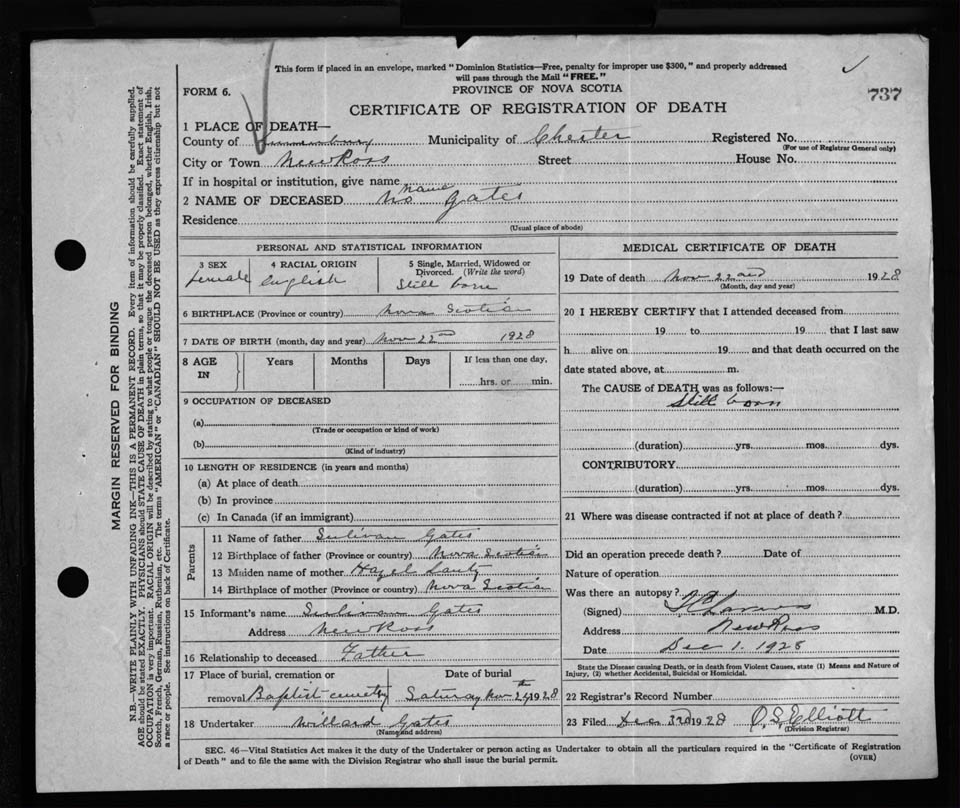 This form if placed in an envelope, marked "Dominion Statistics—Free, penalty for improper use $300," and properly addressed
will pass through the Mail "FREE."
FORM 6.
PROVINCE OF NOVA SCOTIA
737
CERTIFICATE OF REGISTRATION OF DEATH
1 PLACE OF DEATH—
County of Lunenburg Municipality of Chester Registered No.
(For use of Registrar General only)
City or Town New Ross Street House No.
If in hospital or institution, give name
2 NAME OF DECEASED No name Gates
Residence
(Usual place of abode)
PERSONAL AND STATISTICAL INFORMATION
3 SEX
female
4 RACIAL ORIGIN
english
5 Single, Married, Widowed or
Divorced. (Write the word)
Still born
6 BIRTHPLACE (Province or country) Nova Scotian
7 DATE OF BIRTH (month, day and year) Nov 22nd 1928
8 AGE
IN
Years
Months
Days
If less than one day,
hrs. or min.
9 OCCUPATION OF DECEASED
(a)
(Trade or occupation or kind of work)
(b)
(Kind of industry)
10 LENGTH OF RESIDENCE (in years and months)
(a) At place of death
(b) In province
(c) In Canada (if an immigrant)
Parents
11 Name of father Sulivan Gates
12 Birthplace of father (Province or country) Nova Scotian
13 Maiden name of mother Hazel Lantz
14 Birthplace of mother (Province or country) Nova Scotian
15 Informant's name Sulivan Gates
Address New Ross
16 Relationship to deceased Father
17 Place of burial, cremation or Date of burial
removal Baptist cemetry Saturday Nov 24th 1928
18 Undertaker Willard Gates
(Name and address)
MEDICAL CERTIFICATE OF DEATH
19 Date of death Nov 22nd 1928
(Month, day and year)
20 I HEREBY CERTIFY that I attended deceased from
19 to 19 that I last saw
h alive on 19 and that death occurred on the
date stated above, at m.
The CAUSE of DEATH was as follows:—
Still born
(duration) yrs. mos. dys.
CONTRIBUTORY
(duration) yrs. mos. dys.
21 Where was disease contracted if not at place of death?
Did an operation precede death? Date of
Nature of operation
Was there an autopsy?
(Signed) M.D.
Address New Ross
Date Dec 1. 1928
State the Disease causing Death, or in death from Violent Causes, state (1) Means and Nature of
Injury, (2) whether Accidental, Suicidal or Homicidal.
22 Registrar's Record Number
23 Filed Dec 3rd 1928 O. S. Elliott
(Division Registrar)
SEC. 46—Vital Statistics Act makes it the duty of the Undertaker or person acting as Undertaker to obtain all the particulars required in the "Certificate of Registration
of Death" and to file the same with the Division Registrar who shall issue the burial permit.
(OVER)
MARGIN RESERVED FOR BINDING
N.B.—WRITE PLAINLY WITH UNFADING INK—THIS IS A PERMANENT RECORD. Every item of information should be carefully supplied.
AGE should be stated EXACTLY. PHYSICIANS should STATE CAUSE OF DEATH in plain terms, so that it may be properly classified. Exact statement of
OCCUPATION is very important. RACIAL ORIGIN will be described by stating to what people or tongue the deceased person belonged, whether English, Irish,
Scotch, French, German, Russian, Ruthenian, etc. The terms "AMERICAN" or "CANADIAN" SHOULD NOT BE USED as they express citizenship but not
a race or people. See instructions on back of Certificate.